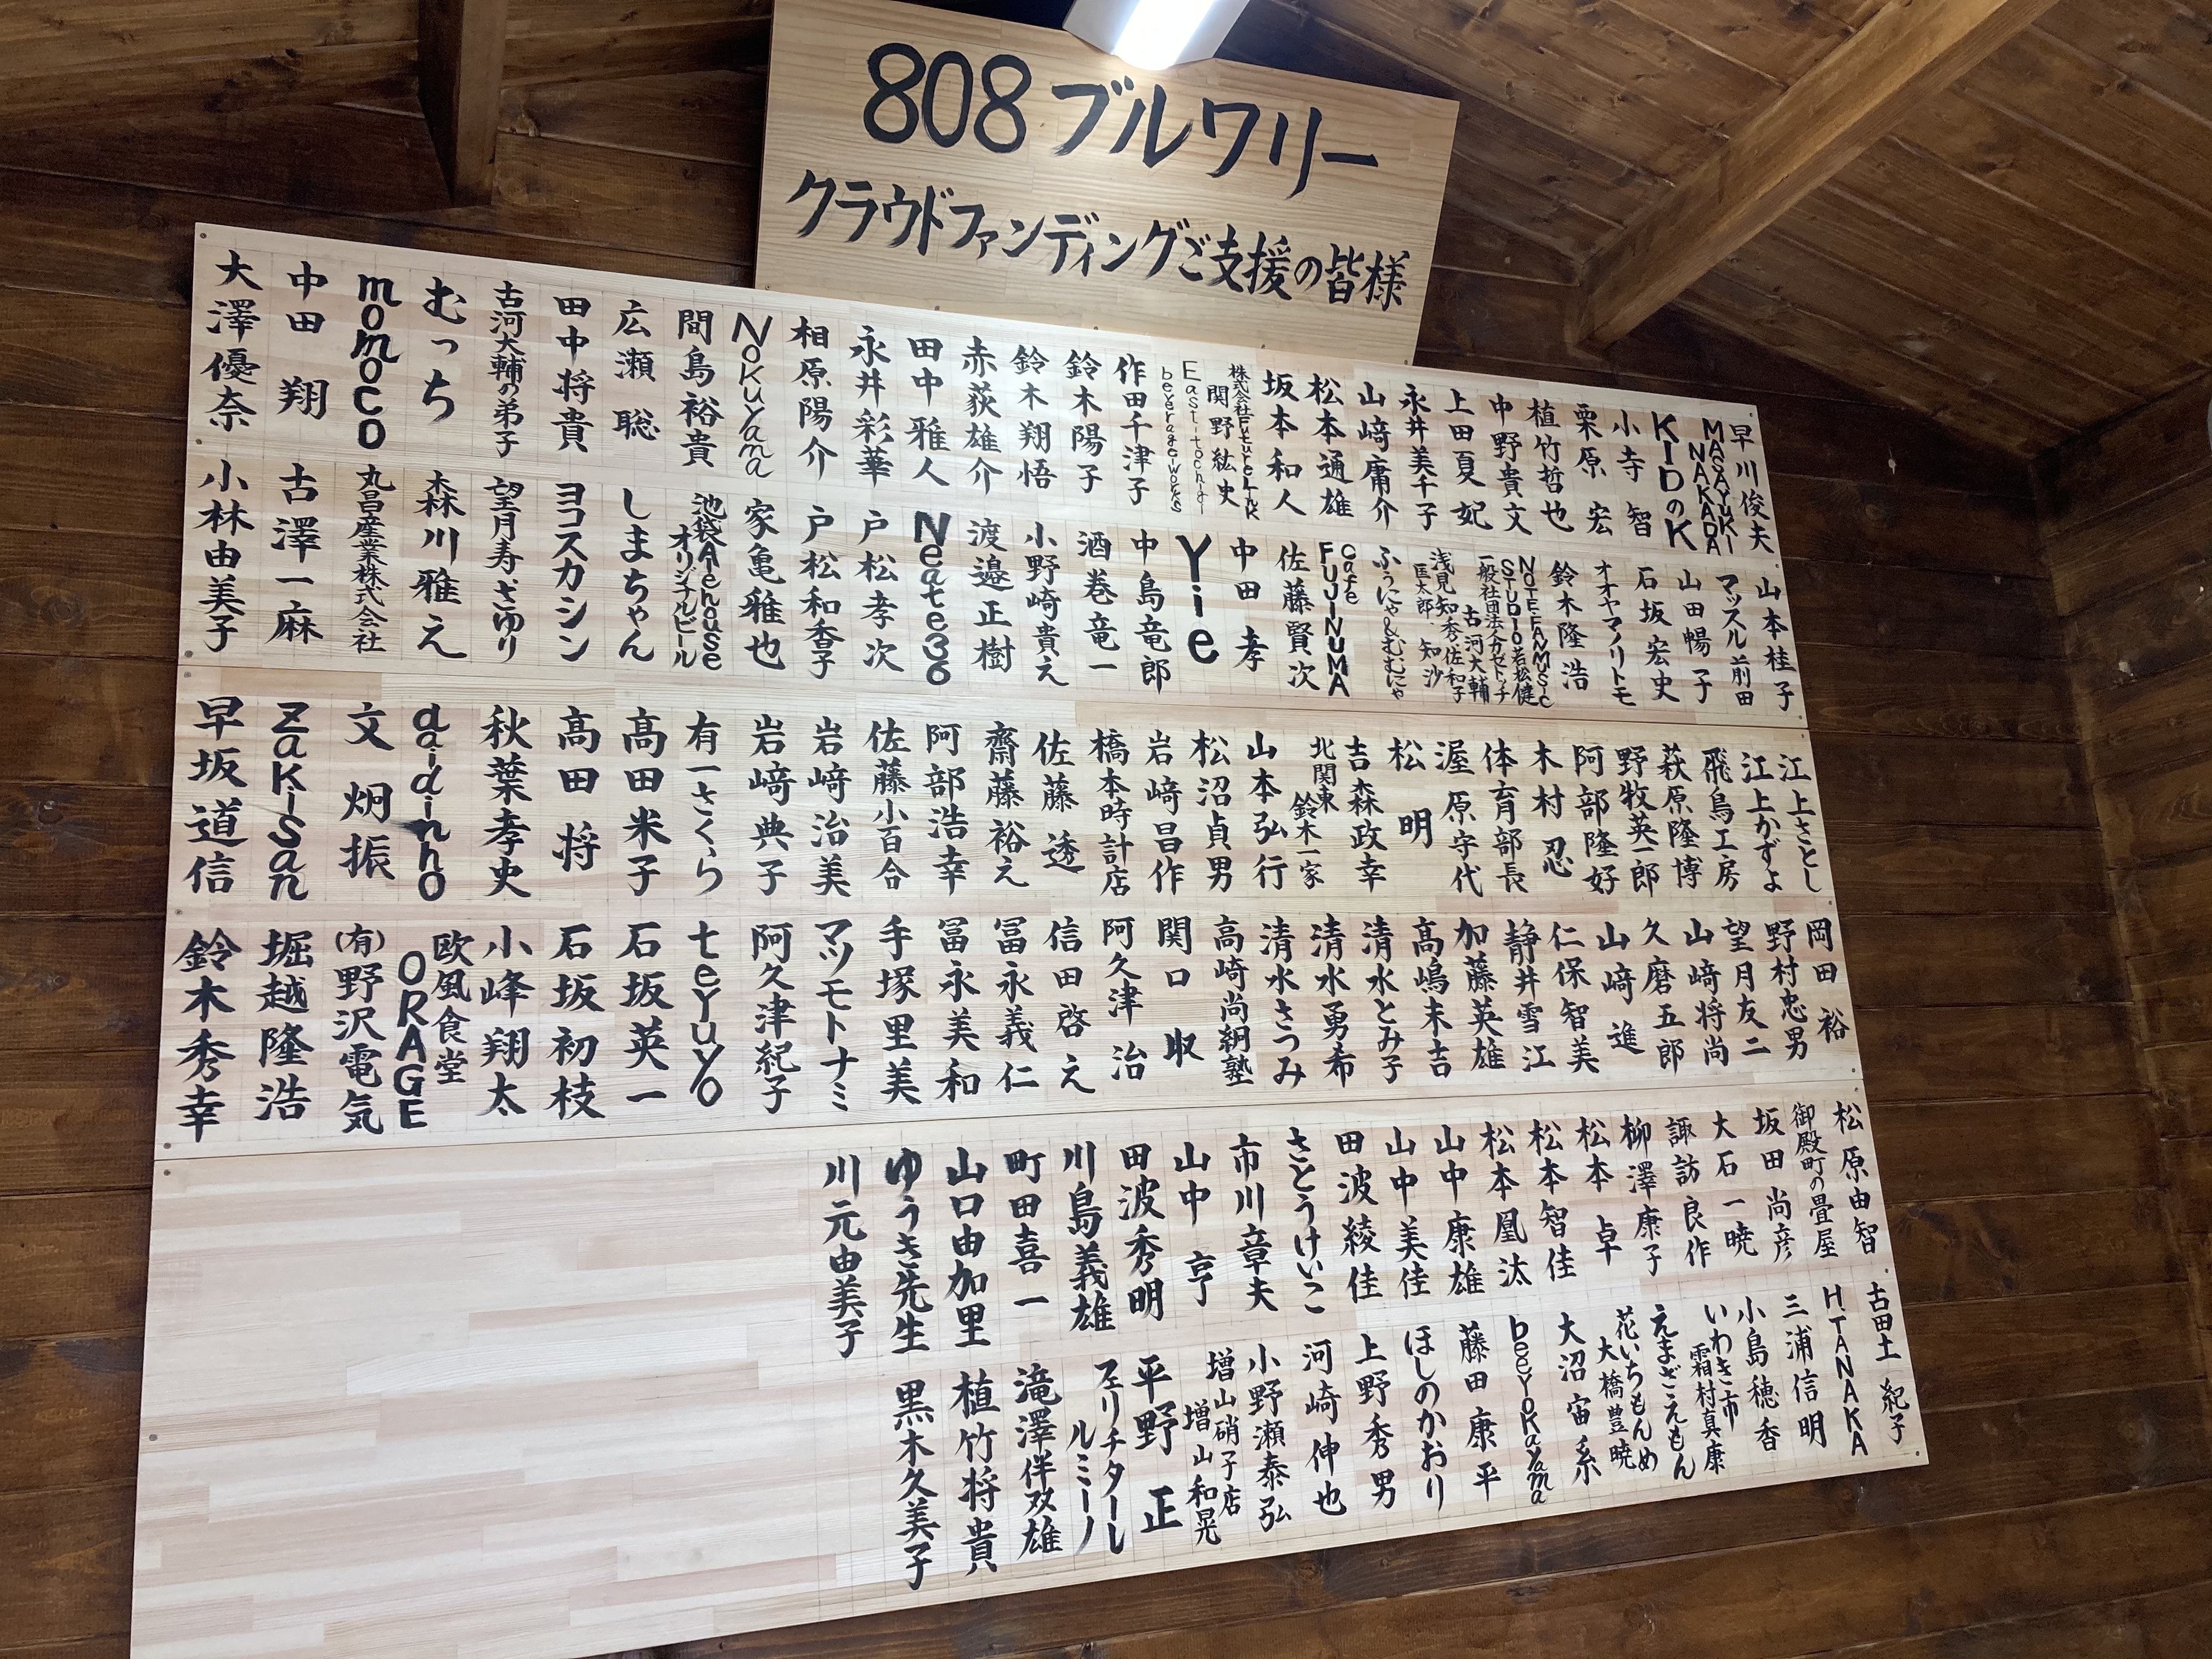 808ブルワリー
クラウドファンディングご支援の皆様
早川俊夫
MASAYUKI
NAKADA
KIDのK
小寺 智
栗原 宏
植竹哲也
中野貴文
上田夏妃
永井美千子
山﨑庸介
松本通雄
坂本和人
株式会社FutureLink
関野紘史
East-tochigi
beverage-works
作田千津子
鈴木陽子
鈴木翔悟
赤荻雄介
田中雅人
永井彩華
相原陽介
Nokuyama
間島裕貴
広瀬 聡
田中将貴
古河大輔の弟子
むっち
momoco
中田 翔
大澤優奈
山本桂子
マッスル前田
山田暢子
石坂宏史
オオヤマノリトモ
鈴木隆浩
NOTE FANMUSIC
STUDIO 若松健
一般社団法人カゼトツチ
古河大輔
浅見知秀 佐和子
匡太郎 知沙
ふぅにゃ&むむにゃ
cafe
FUJINUMA
佐藤賢次
中田 孝
Yie
中島竜郎
酒巻竜一
小野崎貴え
渡邉正樹
Neate36
戸松孝次
戸松和香子
家亀雅也
池袋Alehouse
オリジナルビール
しまちゃん
ヨコスカシン
望月寿さゆり
森川雅え
丸昌産業株式会社
古澤一麻
小林由美子
江上さとし
江上かずよ
飛鳥工房
萩原隆博
野牧英一郎
阿部隆好
木村 忍
体育部長
渥原守代
松 明
吉森政幸
北関東
鈴木一家
山本弘行
松沼貞男
岩﨑昌作
橋本時計店
佐藤 透
齋藤裕え
阿部浩幸
佐藤小百合
岩﨑治美
岩﨑典子
有一さくら
高田米子
高田 将
秋葉孝史
daidinho
文 炯振
Zakisan
早坂道信
岡田 裕
野村忠男
望月友二
山﨑将尚
久磨五郎
山﨑 進
仁保智美
静井雪江
加藤英雄
高嶋末吉
清水とみ子
清水勇希
清水さつみ
高崎尚絅塾
関口 取
阿久津 治
信田啓え
冨永義仁
冨永美和
手塚里美
マツモトナミ
阿久津紀子
teyuyo
石坂英一
石坂初枝
小峰翔太
欧風食堂
ORAGE
(有)野沢電気
堀越隆浩
鈴木秀幸
松原由智
御殿町の畳屋
坂田尚彦
大石一暁
諏訪良作
柳澤康子
松本 卓
松本智佳
松本凰汰
山中康雄
山中美佳
田波綾佳
さとうけいこ
市川章夫
山中 亨
田波秀明
川島義雄
町田喜一
山口由加里
ゆうき先生
川元由美子
古田土 紀子
H.TANAKA
三浦信明
小島穂香
いわき市
霜村真康
えまざえもん
花いちもんめ
大橋豊暁
大沼宙系
beeyokayama
藤田康平
ほしのかおり
上野秀男
河崎伸也
小野瀬泰弘
増山硝子店
増山和晃
平野 正
フェリチタールし
ルミーノ
滝澤伴双雄
植竹将貴
黒木久美子